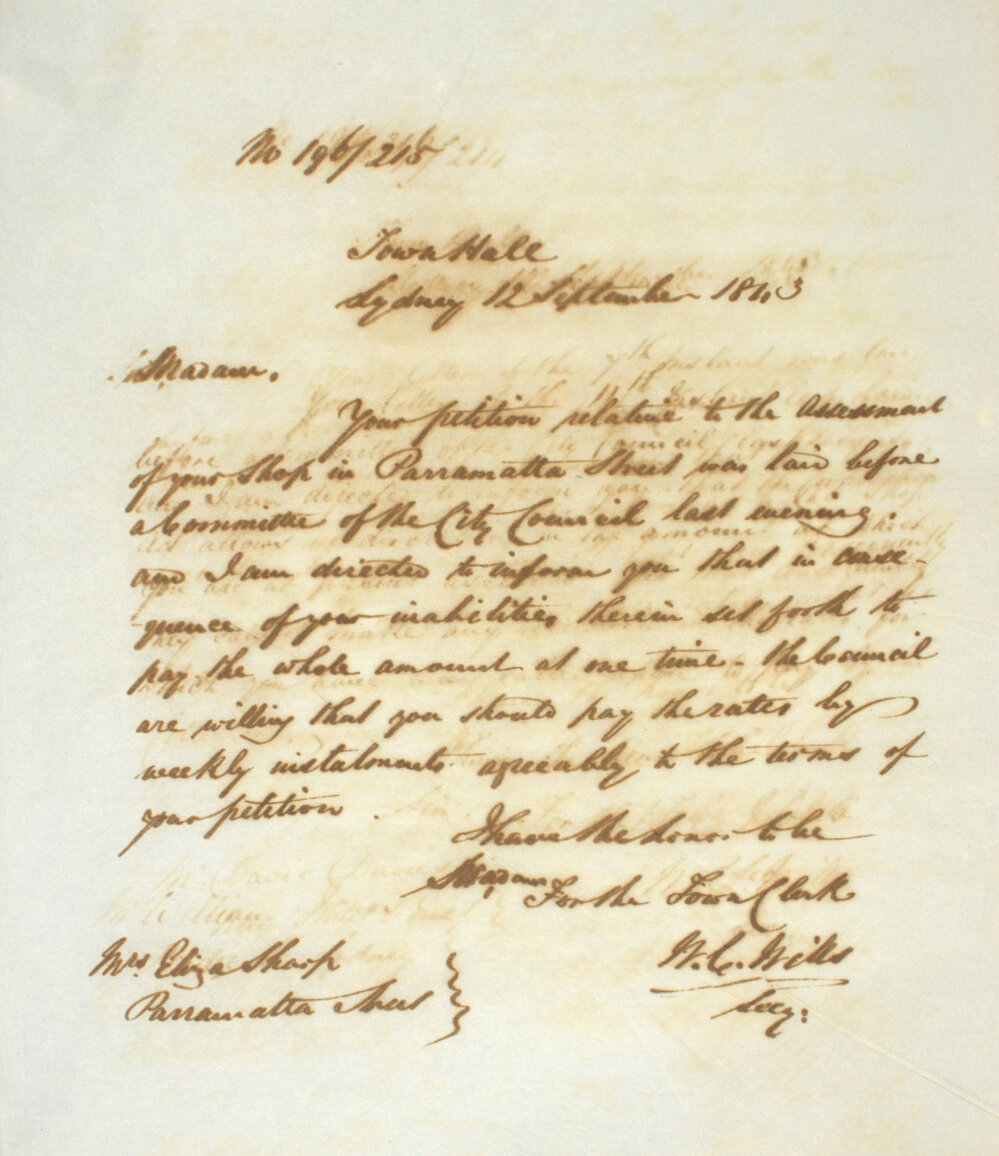 No 196/215
Town Hall
Sydney 12 September 1843
Madam.
Your petition relative to the assessment
of your Shop in Parramatta Street was laid before
a Committee of the City Council last evening.
and I am directed to inform you that in conse-
quence of your inabilities therein set forth to
pay the whole amount at one time - the Council
are willing that you should pay the rates by
weekly instalments agreeably to the terms of
your petition
I have the honor to be
Madam
For the Town Clerk
W. C. Wills
Secy:
Mrs Eliza Sharp
Parramatta Street